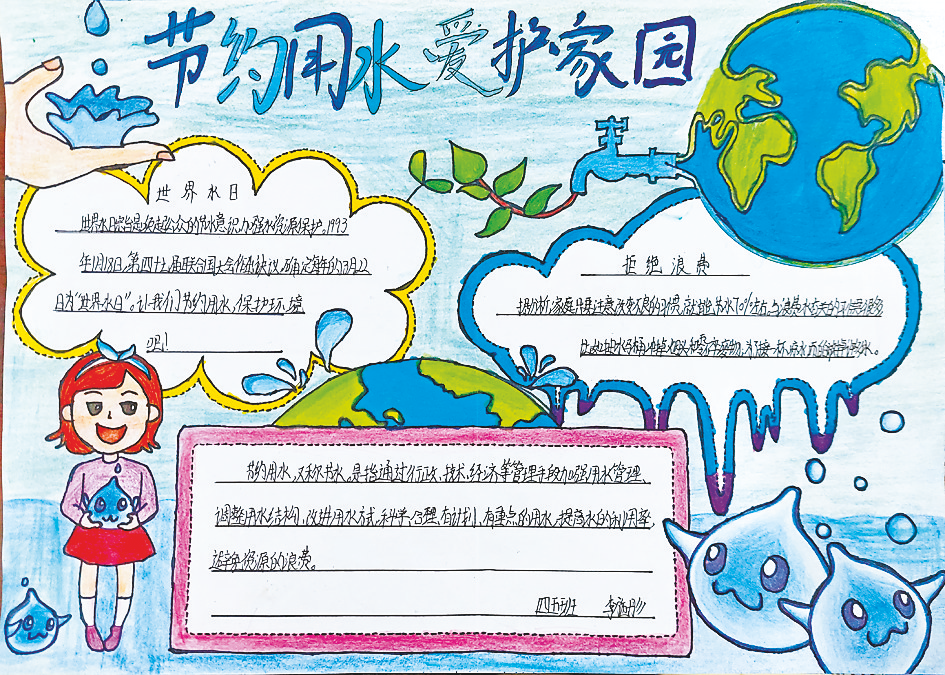 节约用水 爱护家园
世界水日
世界水日宗旨是唤起公众的节水意识,加强水资源保护。1993
年1月18日,第四十七届联合国大会作出决议,确定每年的3月22
日为“世界水日”。让我们节约用水,保护环境
吧!
拒绝浪费
据分析,家庭只要注意改变不良的习惯,就能节水70%左右。与浪费水有关的习惯很多
比如:用水马桶冲掉烟头和零碎废物,
节约用水,又称节水。是指通过行政、技术、经济等管理手段加强用水管理、
调整用水结构,改进用水方式,科学、合理、有计划、有重点的用水,提高水的利用率,
避免资源的浪费。
四五班 李